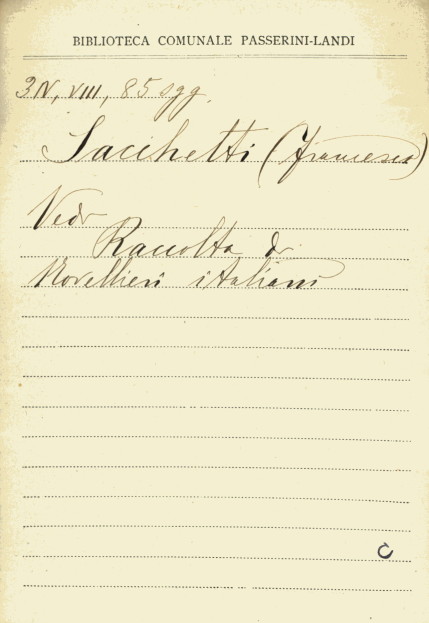 BIBLIOTECA COMUNALE PASSERINI-LANDI
3N, VIII, 85 sgg.
Sacchetti (Francesco)
Vedi
Raccolta di
Novellieri italiani
C